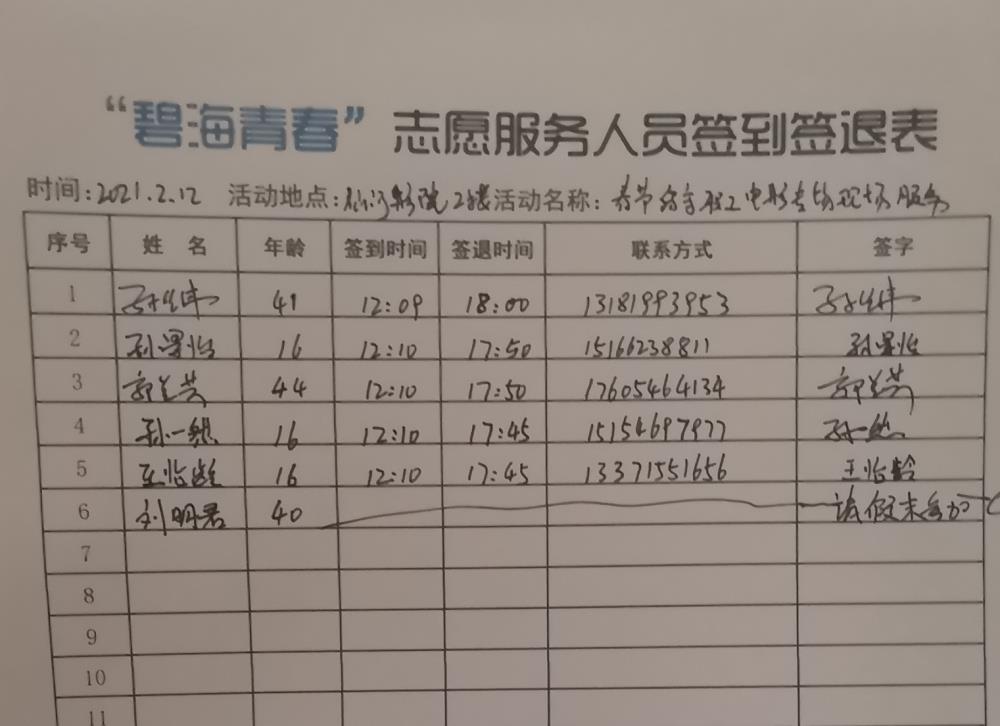 “碧海青春”志愿服务人员签到签退表
时间:2021.2.12 活动地点:影院2楼 活动名称:春节 电影专场现场服务
序号 姓名 年龄 签到时间 签退时间 联系方式 签字
1 41 12:09 18:00 13181993953
2 16 12:10 17:50 15166238811
3 郭兰芳 44 12:10 17:50 17605464134 郭兰芳
4 孙一然 16 12:10 17:45 15154697977 孙一然
5 王怡龄 16 12:10 17:45 13371551656 王怡龄
6 刘明君 40 请假未参加
7
8
9
10
11